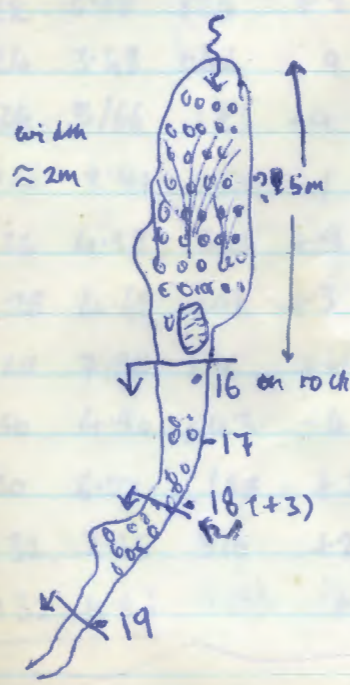 width
≈ 2m
5m
16 on rock
17
18 (+3)
19